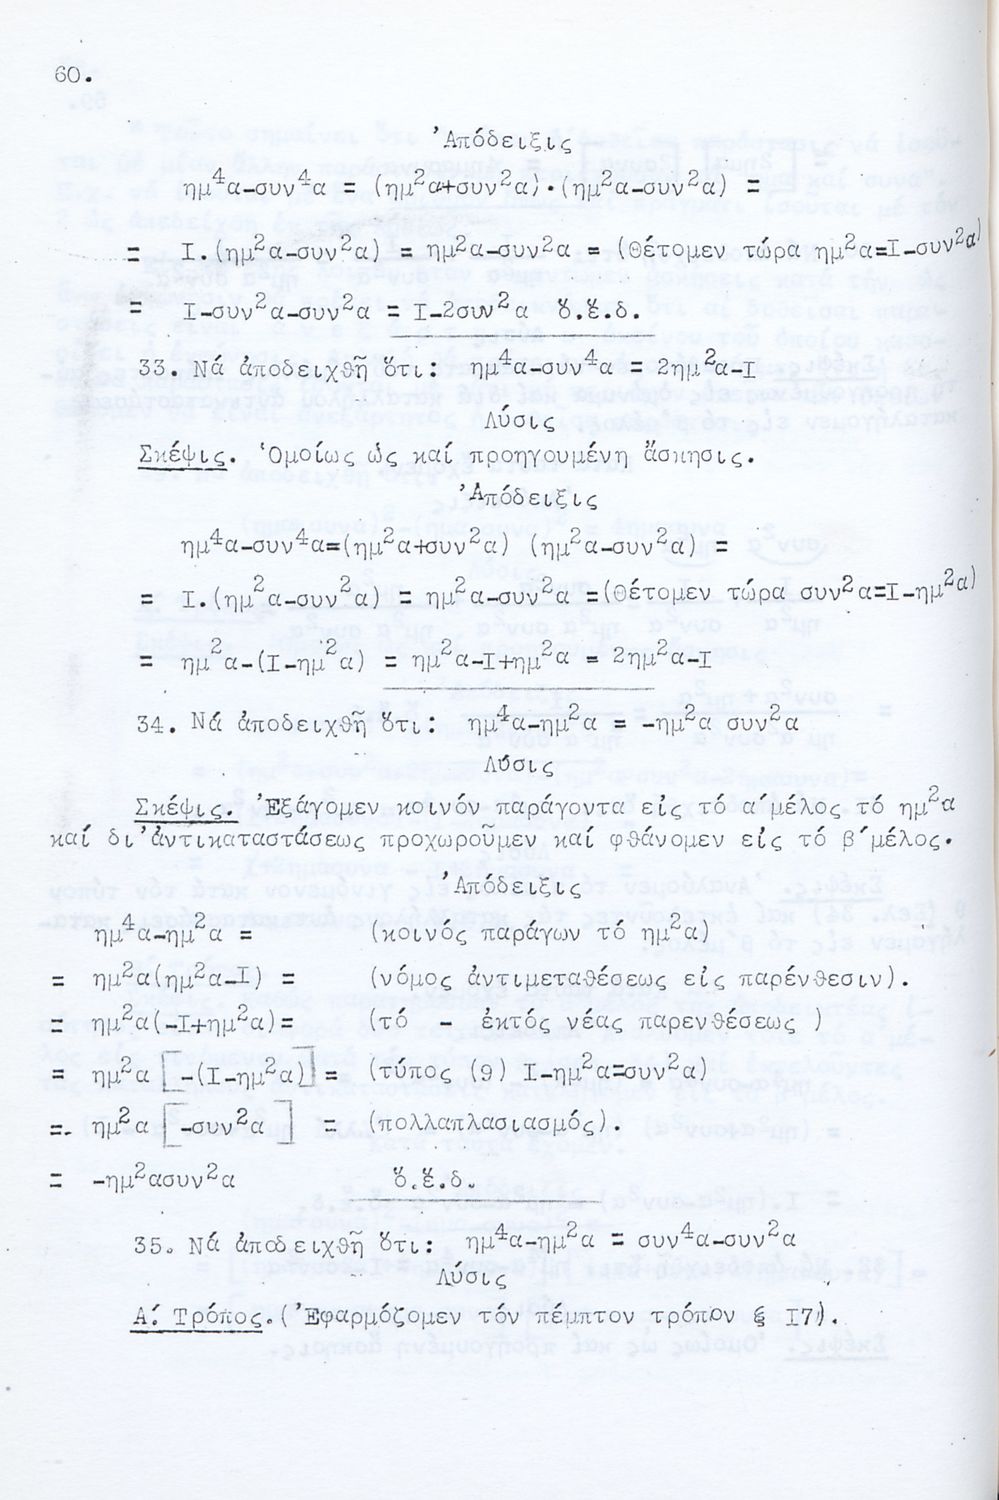 60.
Ἀπόδειξις
ημ⁴α-συν⁴α = (ημ²α+συν²α).(ημ²α-συν²α) =
= I.(ημ²α-συν²α) = ημ²α-συν²α = (Θέτομεν τώρα ημ²α=I-συν²α)
= I-συν²α-συν²α = I-2συν²α ὅ.ἔ.δ.
33. Νά ἀποδειχθῇ ὅτι: ημ⁴α-συν⁴α = 2ημ²α-I
Λύσις
Σκέψις. Ὁμοίως ὡς καί προηγουμένη ἄσκησις.
Ἀπόδειξις
ημ⁴α-συν⁴α=(ημ²α+συν²α) (ημ²α-συν²α) =
= I.(ημ²α-συν²α) = ημ²α-συν²α =(Θέτομεν τώρα συν²α=I-ημ²α)
= ημ²α-(I-ημ²α) = ημ²α-I+ημ²α = 2ημ²α-I
34. Νά ἀποδειχθῇ ὅτι: ημ⁴α-ημ²α = -ημ²α συν²α
Λύσις
Σκέψις. Ἐξάγομεν κοινόν παράγοντα εἰς τό α΄μέλος τό ημ²α
καί δι'ἀντικαταστάσεως προχωροῦμεν καί φθάνομεν εἰς τό β΄μέλος.
Ἀπόδειξις
ημ⁴α-ημ²α = (κοινός παράγων τό ημ²α)
= ημ²α(ημ²α-I) = (νόμος ἀντιμεταθέσεως εἰς παρένθεσιν).
= ημ²α(-I+ημ²α)= (τό - ἐκτός νέας παρενθέσεως )
= ημ²α [-(I-ημ²α)] = (τύπος (9) I-ημ²α=συν²α)
=. ημ²α [-συν²α ] = (πολλαπλασιασμός,).
= -ημ²ασυν²α ὅ.ἔ.δ.
35. Νά ἀποδειχθῇ ὅτι: ημ⁴α-ημ²α = συν⁴α-συν²α
Λύσις
Α΄. Τρόπος.(Ἐφαρμόζομεν τόν πέμπτον τρόπον § I7).